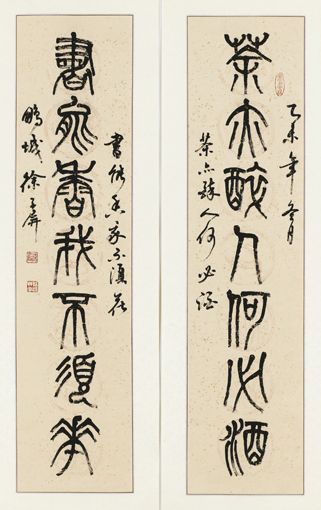 茶亦醉人何必酒
乙未年冬月
茶亦醉人何必酒
書能香我不須花
書能香我不須花
鵬城徐子屏